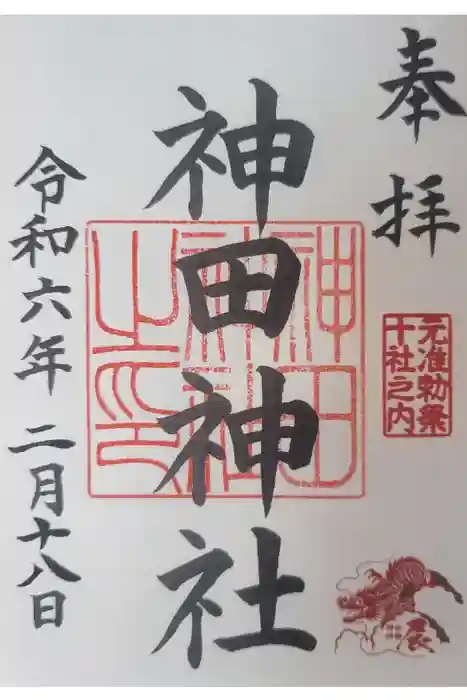 奉拝
元准勅祭
十社之内
辰
神田神社
神田神社之印
令和六年 二月十八日